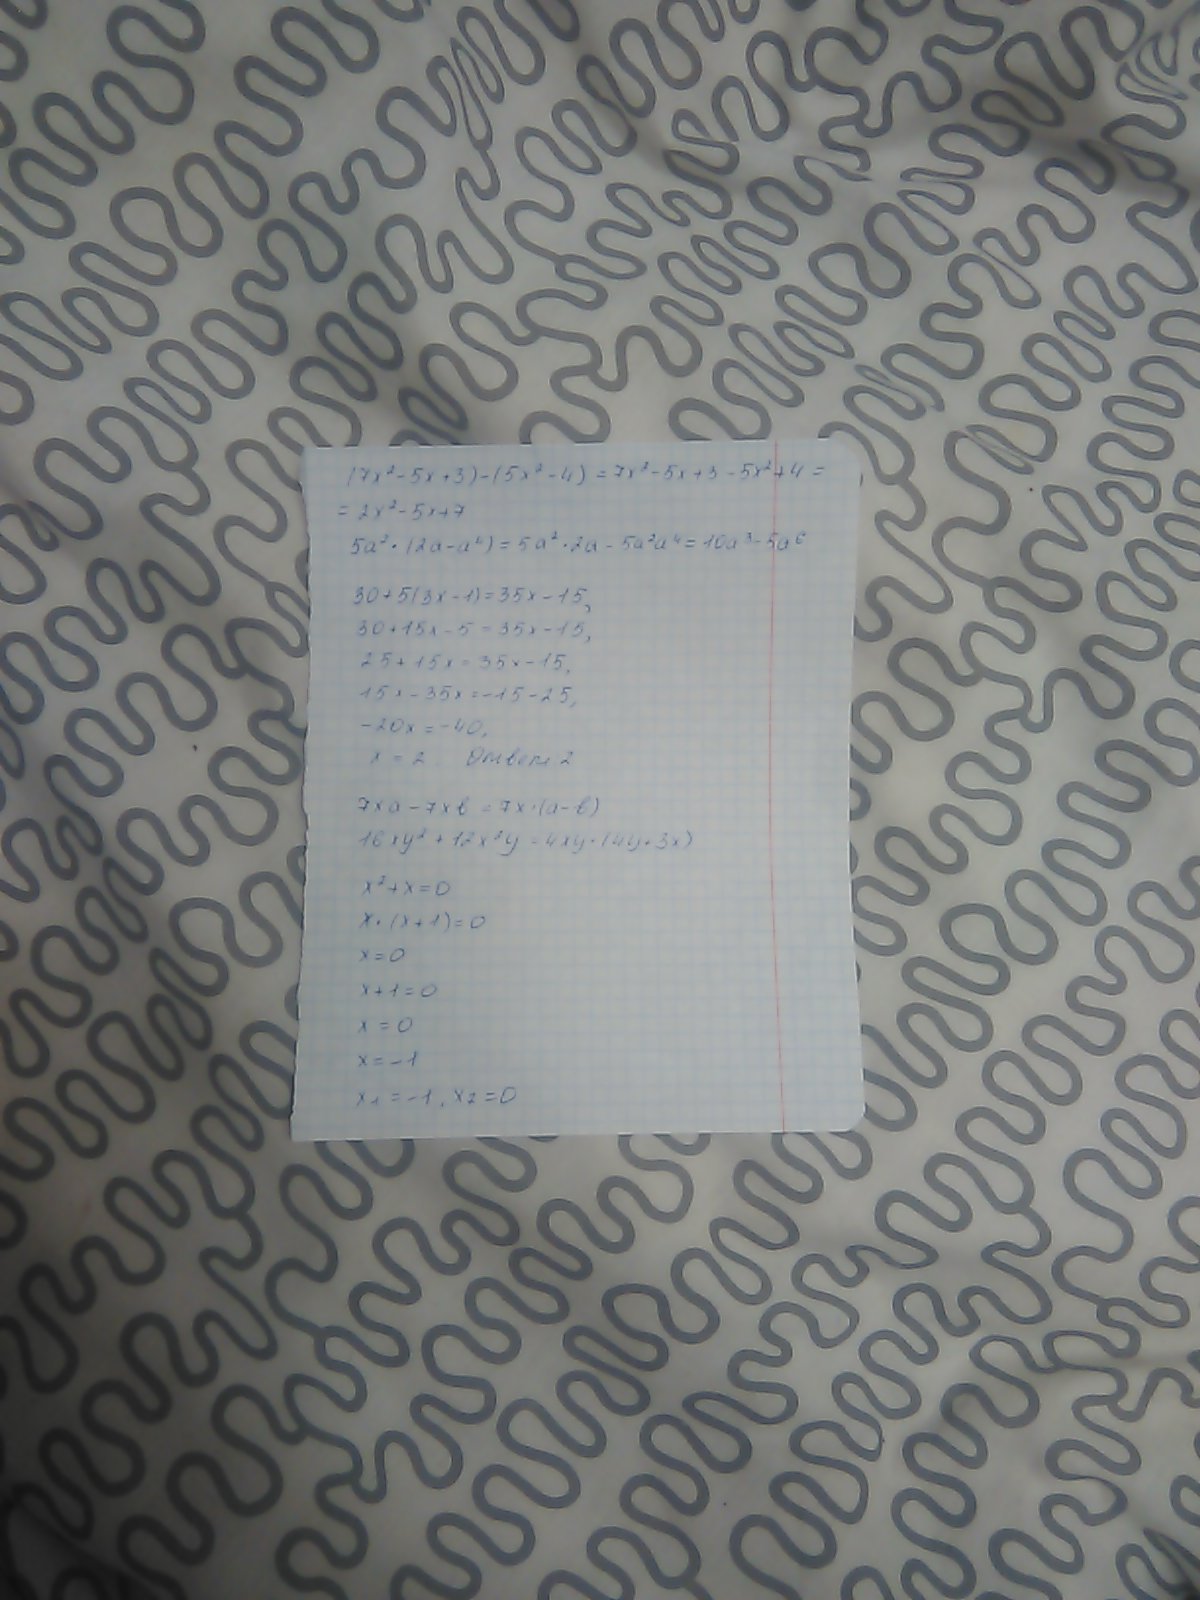 (7x²-5x+3)-(5x²-4)=7x²-5x+3-5x²+4=
=2x²-5x+7
5a²·(2a-a⁴)=5a²·2a-5a²a⁴=10a³-5a⁶
30+5(3x-1)=35x-15,
30+15x-5=35x-15,
25+15x=35x-15,
15x-35x=-15-25,
-20x=-40,
x=2. Ответ 2
7xa-7xb=7x·(a-b)
16xy²+12x²y=4xy·(4y+3x)
x²+x=0
x·(x+1)=0
x=0
x+1=0
x=0
x=-1
x₁=-1, x₂=0